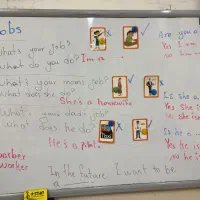 Jobs
What's your job?
What do you do? I'm a
Are you a
Yes I am
no
What's your mom's job?
What does she do?
She's a housewife
Is she a
Yes She is
no she isn
What's your dad's job?
Who does he do?
He's a
Is he a
Yes he is
no he is
barber
worker
In the future I want to be
a